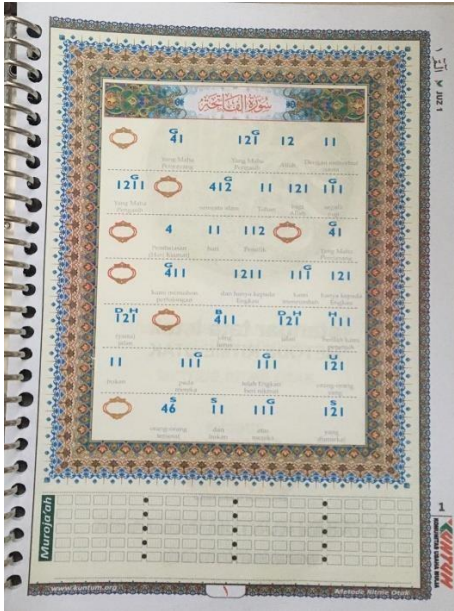 ١ الم ٓ JUZ 1
سُورَةُ الفَاتِحَة
G G
41 121 12 11
Yang Maha Penyayang Yang Maha Pengasih Allah Dengan menyebut nama
G G G
1211 412 11 121 111
Yang Maha Pengasih semesta alam Tuhan bagi Allah segala puji
G
4 11 112 41
Pembalasan hari Pemilik Yang Maha Penyayang
G G
411 1211 111 121
kami memohon pertolongan dan hanya kepada Engkau kami menyembah hanya kepada Engkau
D H B D H H
121 411 121 111
jalan yang lurus jalan
G G U
11 111 111 121
bukan pada mereka telah Engkau beri nikmat orang-orang yang
S S G S
46 11 111 121
orang-orang dan bukan atas mereka yang dimurkai
Muroja'ah
1
KUNTUM
www.kuntum.org
١
Metode Ritme Otak